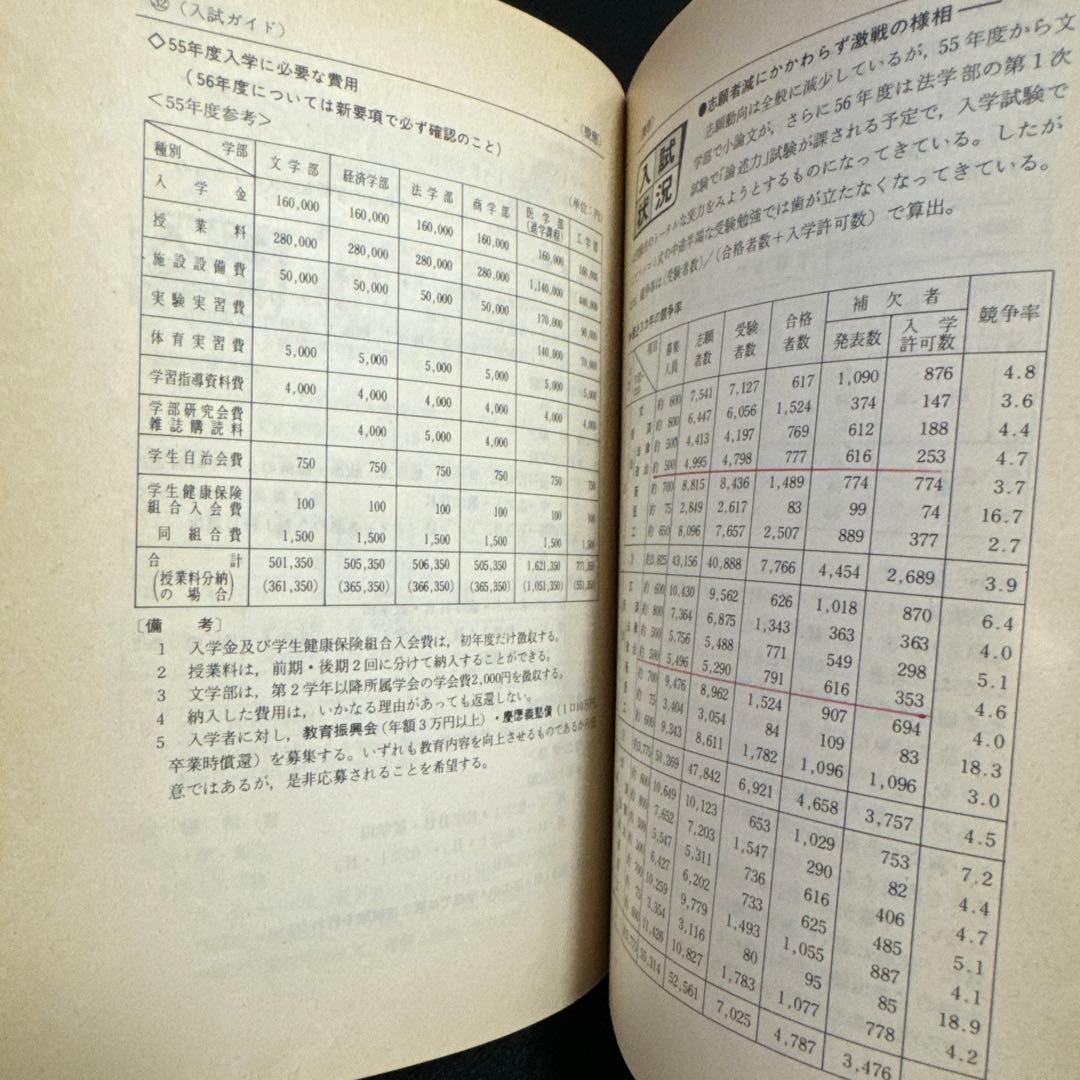 ㉜（入試ガイド）
◇55年度入学に必要な費用
（56年度については新要項で必ず確認のこと）
＜55年度参考＞
（単位：円）
種別 学部 文学部 経済学部 法学部 商学部 医学部（進学課程） 工学部
入学金 160,000 160,000 160,000 160,000 160,000 160,000
授業料 280,000 280,000 280,000 280,000 1,140,000 440,000
施設設備費 50,000 50,000 50,000 50,000 170,000 90,000
実験実習費 140,000 70,000
体育実習費 5,000 5,000 5,000 5,000 5,000 5,000
学習指導資料費 4,000 4,000 4,000 4,000 4,000 4,000
学部研究会費
雑誌購読料 4,000 5,000 4,000
学生自治会費 750 750 750 750 750 750
学生健康保険
組合入会費 100 100 100 100 100 100
同組合費 1,500 1,500 1,500 1,500 1,500 1,500
合計 501,350 505,350 506,350 505,350 1,621,350 771,350
（授業料分納の場合） (361,350) (365,350) (366,350) (365,350) (1,051,350) (551,350)
〔備考〕
1 入学金及び学生健康保険組合入会費は，初年度だけ徴収する。
2 授業料は，前期・後期2回に分けて納入することができる。
3 文学部は，第2学年以降所属学会の学会費2,000円を徴収する。
4 納入した費用は，いかなる理由があっても返還しない。
5 入学者に対し，教育振興会（年額3万円以上）・慶應義塾債（1口10万円
卒業時償還）を募集する。いずれも教育内容を向上させるものであるから
意ではあるが，是非応募されることを希望する。
入試状況
●志願者減にかかわらず激戦の様相
志願動向は全般に減少しているが，55年度から文
学部で小論文が，さらに56年度は法学部の第1次
試験で「論述力」試験が課される予定で，入学試験で
のトータルな実力をみようとするものになってきている。したが
式の中途半端な受験勉強では歯が立たなくなってきている。
競争率は（受験者数）／（合格者数＋入学許可数）で算出。
カ年の競争率
項目 募集人員 志願者数 受験者数 合格者数 補欠者 発表数 入学許可数 競争率
文 約600 7,541 7,127 617 1,090 876 4.8
済 約800 6,447 6,056 1,524 374 147 3.6
律 約500 4,413 4,197 769 612 188 4.4
治 約500 4,995 4,798 777 616 253 4.7
約700 8,815 8,436 1,489 774 774 3.7
医 約75 2,849 2,617 83 99 74 16.7
工 約650 8,096 7,657 2,507 889 377 2.7
計 約3,825 43,156 40,888 7,766 4,454 2,689 3.9
文 約600 10,430 9,562 626 1,018 870 6.4
済 約800 7,364 6,875 1,343 363 363 4.0
約500 5,756 5,488 771 549 298 5.1
治 約500 5,496 5,290 791 616 353 4.6
9,476 8,962 1,524 907 694 4.0
約75 3,404 3,054 84 109 83 18.3
工 約600 9,343 8,611 1,782 1,096 1,096 3.0
51,269 47,842 6,921 4,658 3,757 4.5
約600 10,649 10,123 653 1,029 753 7.2
7,652 7,203 1,547 290 82 4.4
5,547 5,311 736 616 406 4.7
6,427 6,202 733 625 485 5.1
10,259 9,779 1,493 1,055 887 4.1
3,354 3,116 80 95 85 18.9
11,426 10,827 1,783 1,077 778 4.2
55,314 52,561 7,025 4,787 3,476